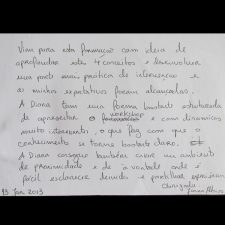 Vim para esta formação com ideia de
aprofundar estes 4 conceitos e desenvolver
uma parte mais prática de intervenção e
as minhas expectativas foram alcançadas.
A Diana tem uma forma bastante estruturada
de apresentar o workshop e com dinâmicas
muito interessantes, o que faz com que o
conhecimento se torne bastante claro.
A Diana consegue também criar um ambiente
de proximidade e de à vontade onde é
fácil esclarecer dúvidas e partilhar experiências
Obrigada
15 Jun 2013